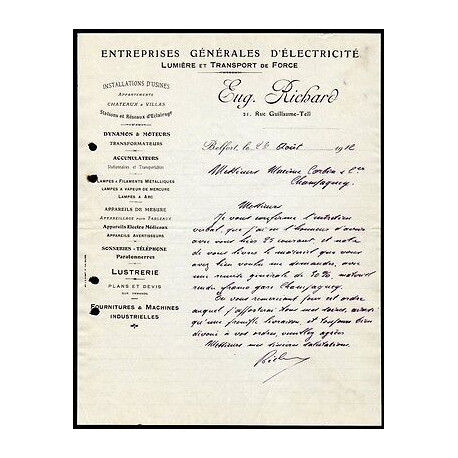 ENTREPRISES GÉNÉRALES D'ÉLECTRICITÉ
LUMIÈRE ET TRANSPORT DE FORCE
INSTALLATIONS D'USINES
APPARTEMENTS
CHATEAUX & VILLAS
Stations et Réseaux d'Eclairage
DYNAMOS & MOTEURS
TRANSFORMATEURS
ACCUMULATEURS
Stationnaires et Transportables
LAMPES A FILAMENTS MÉTALLIQUES
LAMPES A VAPEUR DE MERCURE
LAMPES A ARC
APPAREILS DE MESURE
APPAREILLAGE POUR TABLEAUX
Appareils Electro Médicaux
APPAREILS AVERTISSEURS
SONNERIES - TÉLÉPHONE
Paratonnerres
LUSTRERIE
PLANS ET DEVIS
SUR DEMANDE
FOURNITURES & MACHINES
INDUSTRIELLES
Eug. Richard
21, Rue Guillaume-Tell
Belfort, le 26 Août 1912
Messieurs Maxime Corbin & Cie
Champagney
Messieurs
Je vous confirme l'entretien
verbal, que j'ai eu l'honneur d'avoir
avec vous hier 25 courant, et note
de vous livrer le matériel que vous
avez bien voulu me demander, avec
une remise générale de 10 %, matériel
rendu franco gare Champagney.
En vous remerciant pour cet ordre
auquel j'apporterai tous mes soins, ainsi
qu'une prompte livraison, et toujours bien
dévoué à vos ordres, veuillez agréer
Messieurs mes sincères salutations.